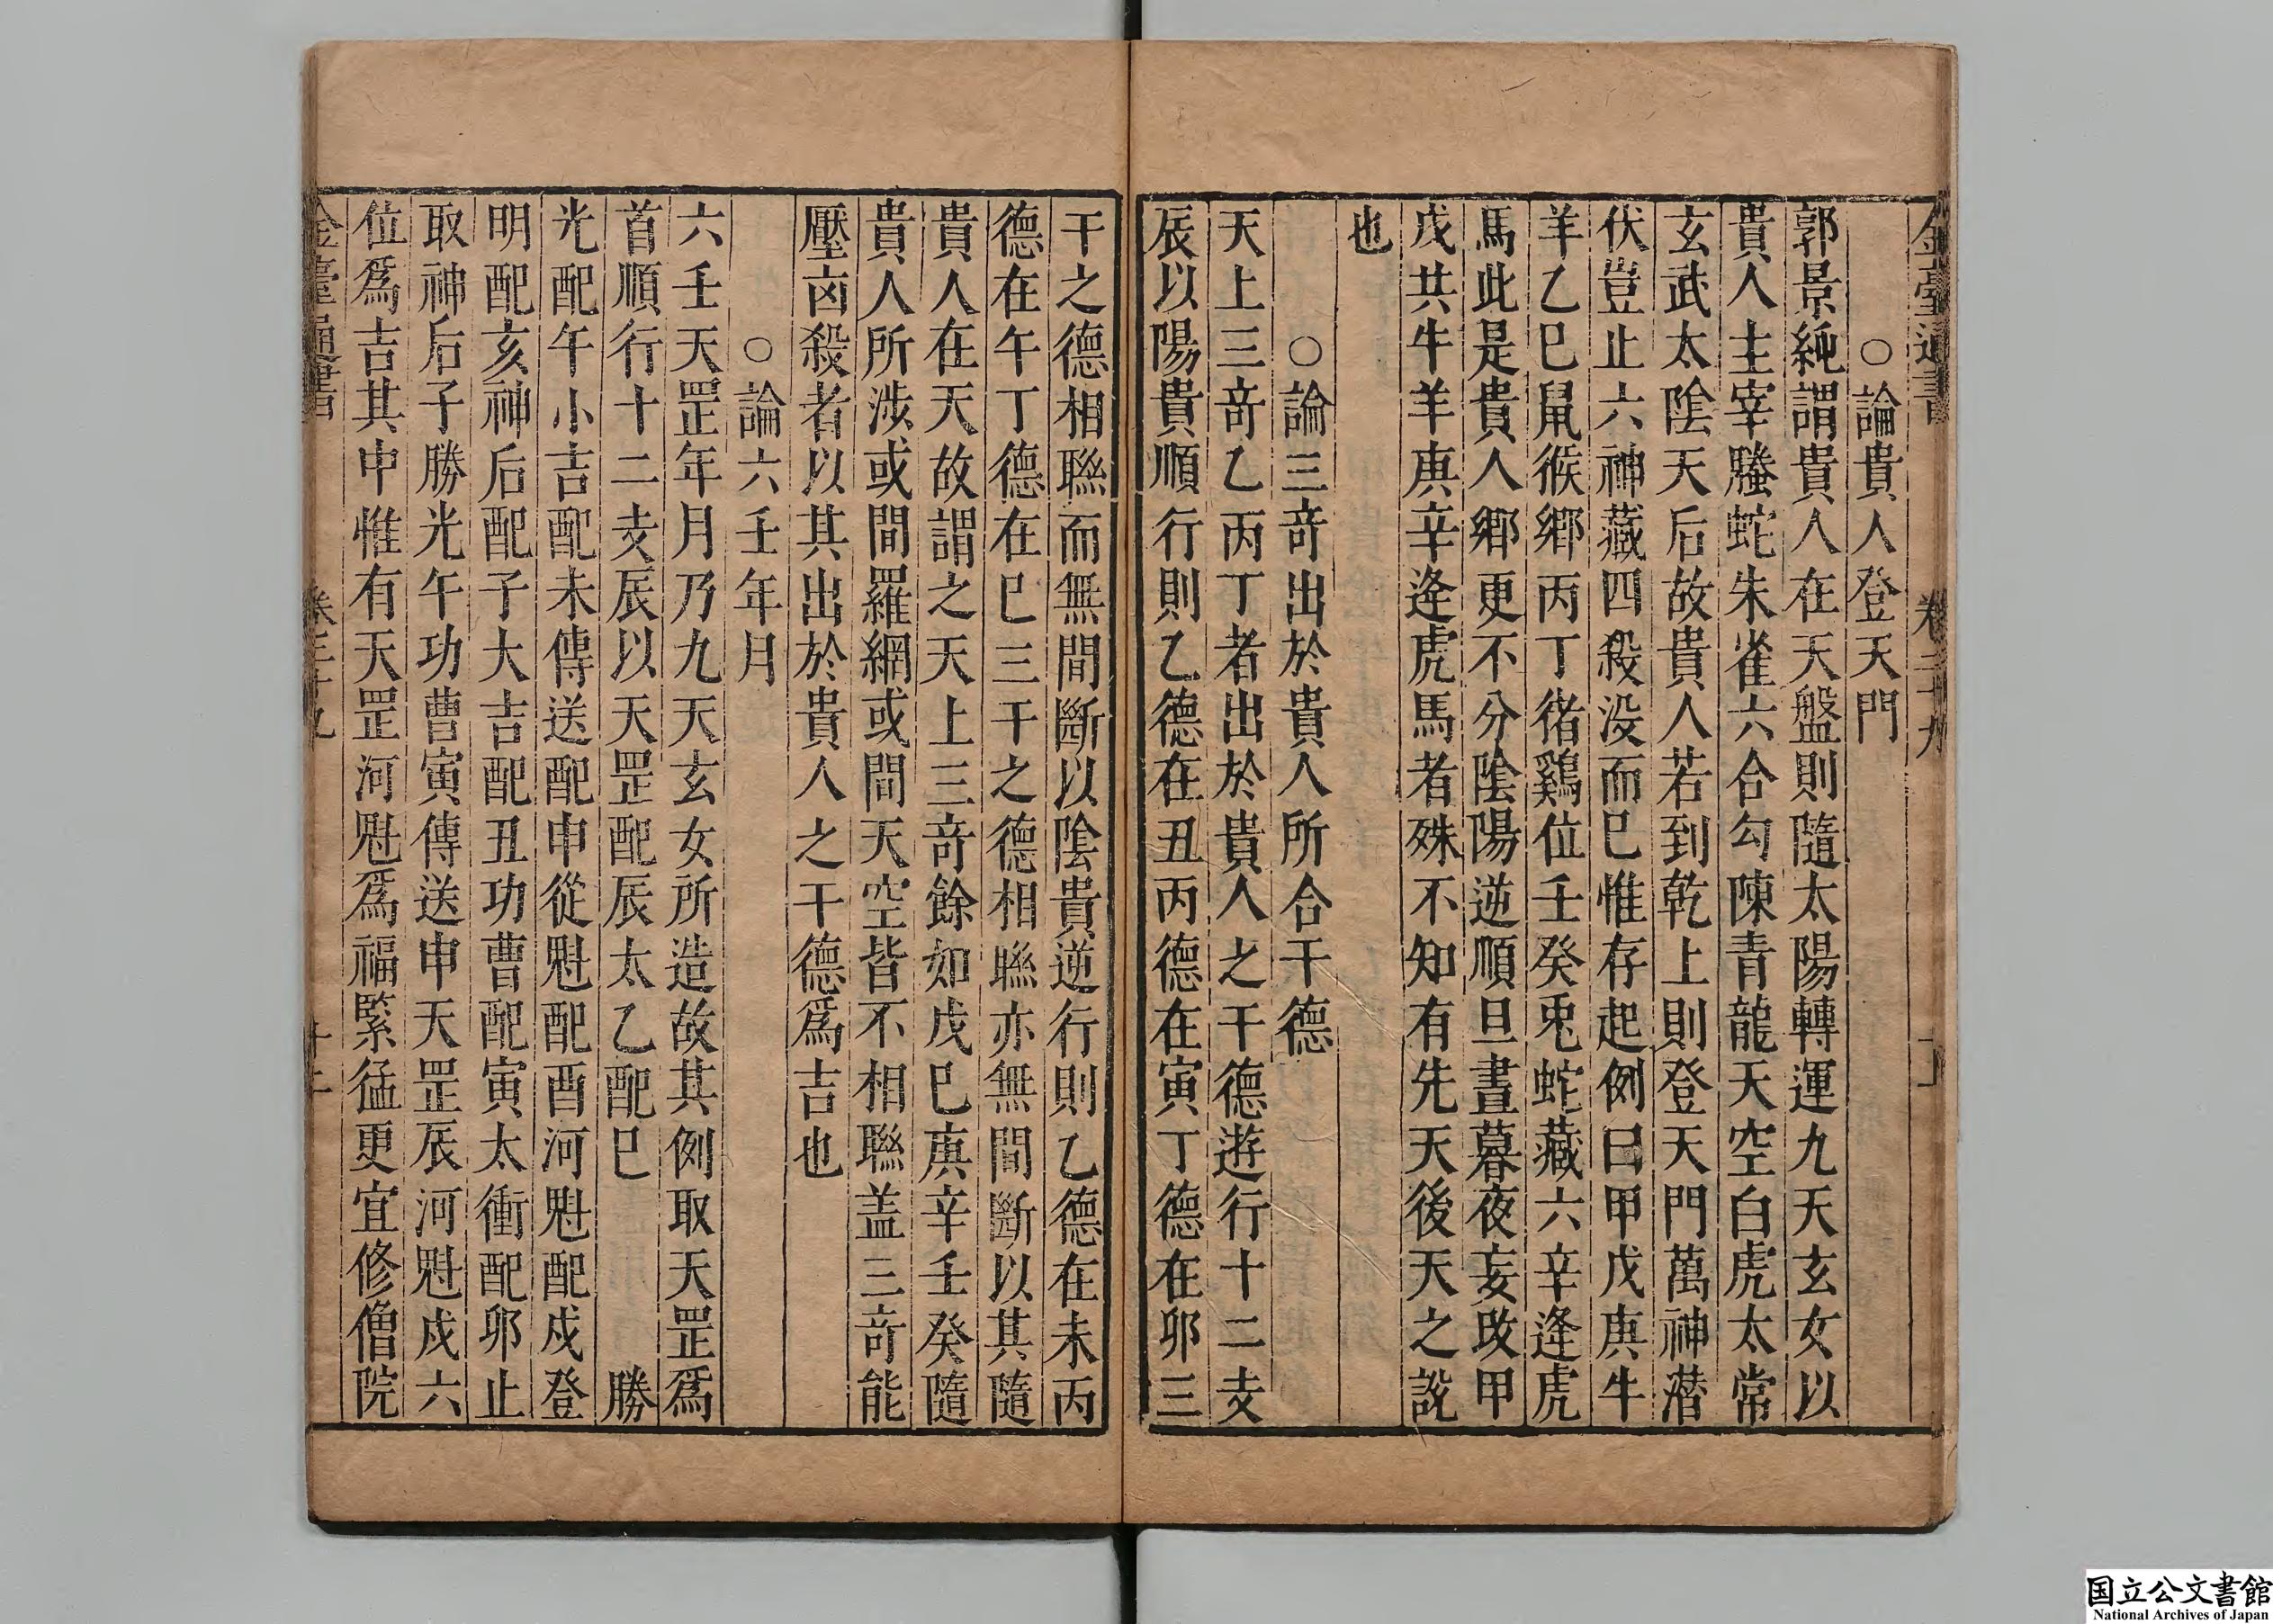 金臺通書 卷二十九
○論貴人登天門
郭景純謂貴人在天盤則隨太陽轉運九天玄女以
貴人主宰螣蛇朱雀六合勾陳青龍天空白虎太常
玄武太陰天后故貴人若到乾上則登天門萬神潜
伏豈止六神藏四殺没而巳惟存起例曰甲戊庚牛
羊乙巳鼠猴鄉丙丁猪鷄位壬癸兎蛇藏六辛逢虎
馬此是貴人鄉更不分陰陽逆順旦晝暮夜妄改甲
戊共牛羊庚辛逢虎馬者殊不知有先天後天之說
也
○論三竒出於貴人所合干德
天上三竒乙丙丁者出於貴人之干德遊行十二支
辰以陽貴順行則乙德在丑丙德在寅丁德在卯三
干之德相聯而無間斷以陰貴逆行則乙德在未丙
德在午丁德在巳三干之德相聯亦無間斷以其隨
貴人在天故謂之天上三竒餘如戊巳庚辛壬癸隨
貴人所涉或間羅網或間天空皆不相聯盖三竒能
壓凶殺者以其出於貴人之干德爲吉也
○論六壬年月
六壬天罡年月乃九天玄女所造故其例取天罡爲
首順行十二支辰以天罡配辰太乙配巳 勝
光配午小吉配未傳送配申從魁配酉河魁配戍登
明配亥神后配子大吉配丑功曹配寅太衝配卯止
取神后子勝光午功曹寅傳送申天罡辰河魁戍六
位爲吉其中惟有天罡河魁爲福緊猛更宜修僧院
金臺通書 卷二十九 十二
国立公文書館
National Archives of Japan